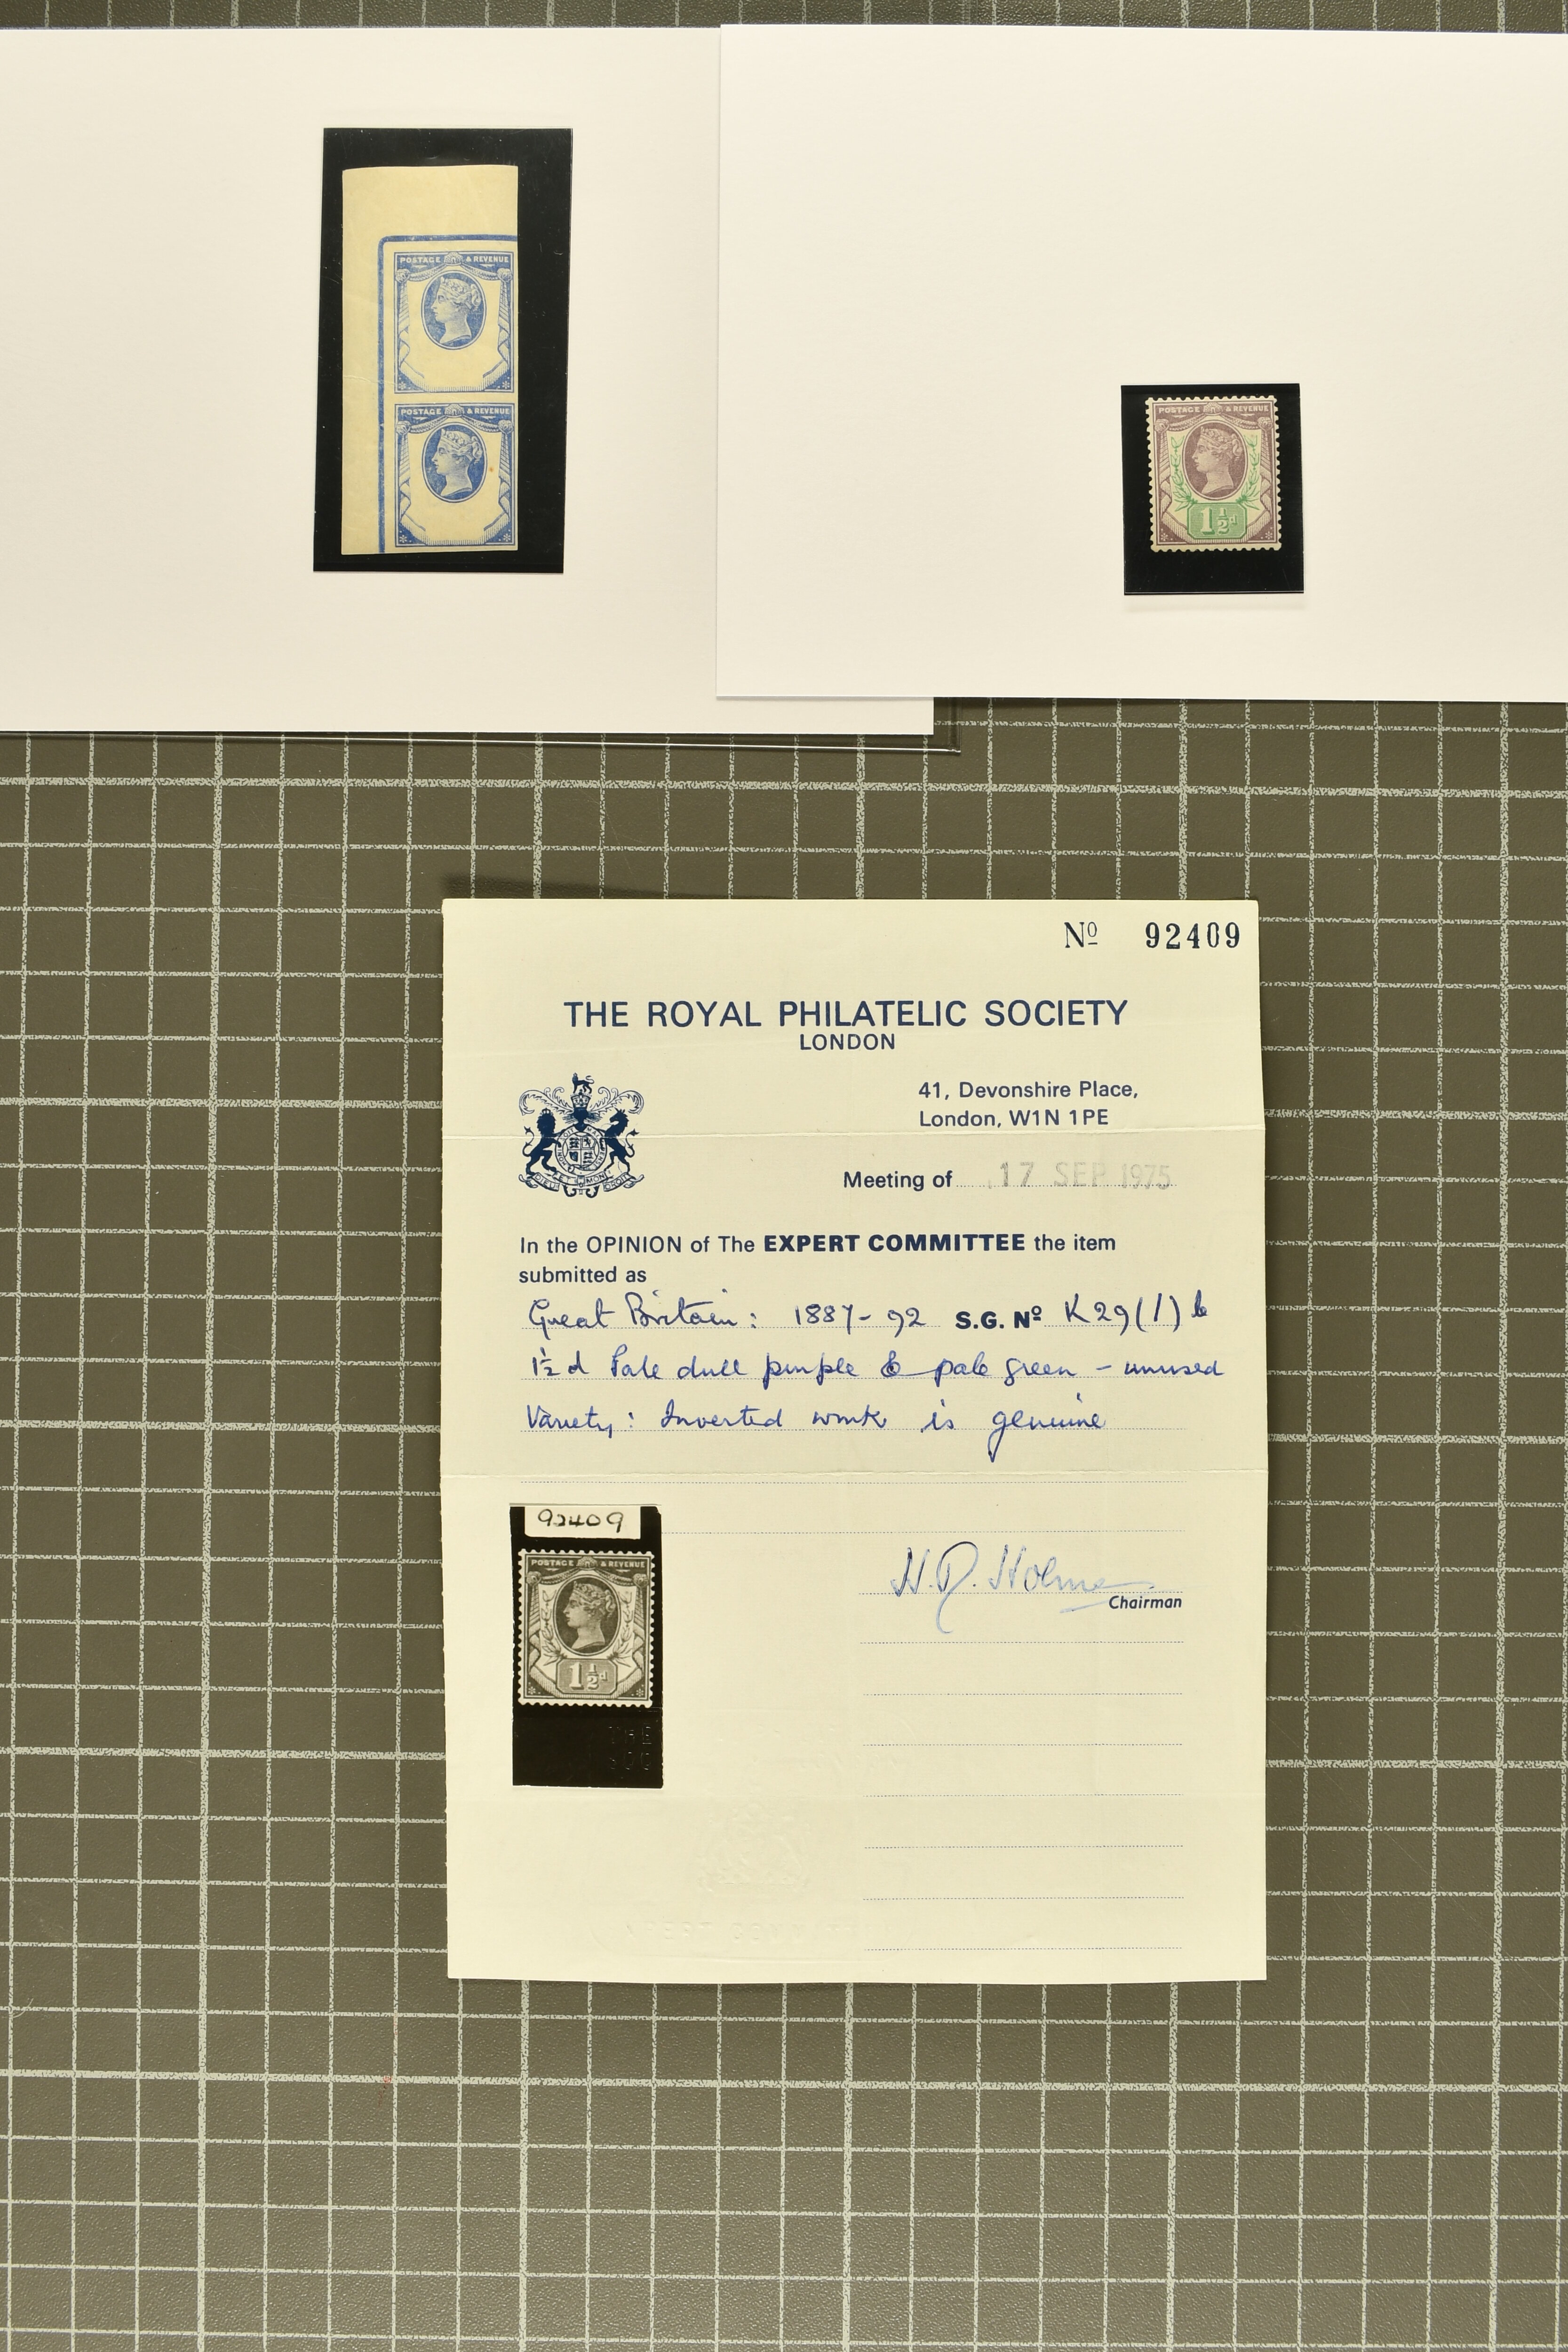 POSTAGE & REVENUE
POSTAGE & REVENUE
POSTAGE & REVENUE
1½d
Nº 92409
THE ROYAL PHILATELIC SOCIETY
LONDON
41, Devonshire Place,
London, W1N 1PE
Meeting of 17 SEP 1975
In the OPINION of The EXPERT COMMITTEE the item
submitted as
Great Britain: 1887-92 S.G. Nº K29(1)b
1½d Pale dull purple & pale green - unused
Variety: Inverted wmk is genuine
92409
POSTAGE & REVENUE
1½d
THE
SOC
H.R. Holmes
Chairman